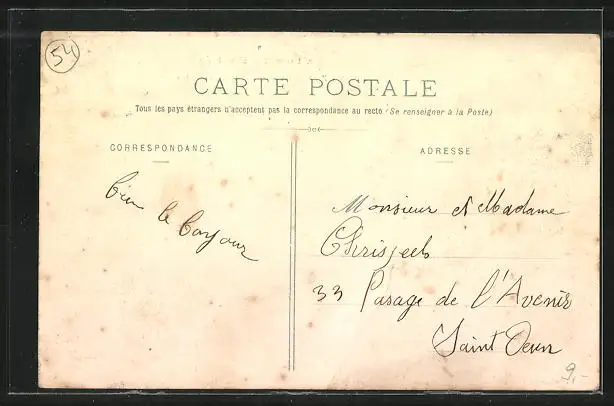 54
CARTE POSTALE
Tous les pays étrangers n'acceptent pas la correspondance au recto (Se renseigner à la Poste)
CORRESPONDANCE
ADRESSE
bien le bonjour
Monsieur et Madame
33 Pasage de l'Avenir
Saint Ouen
9.-